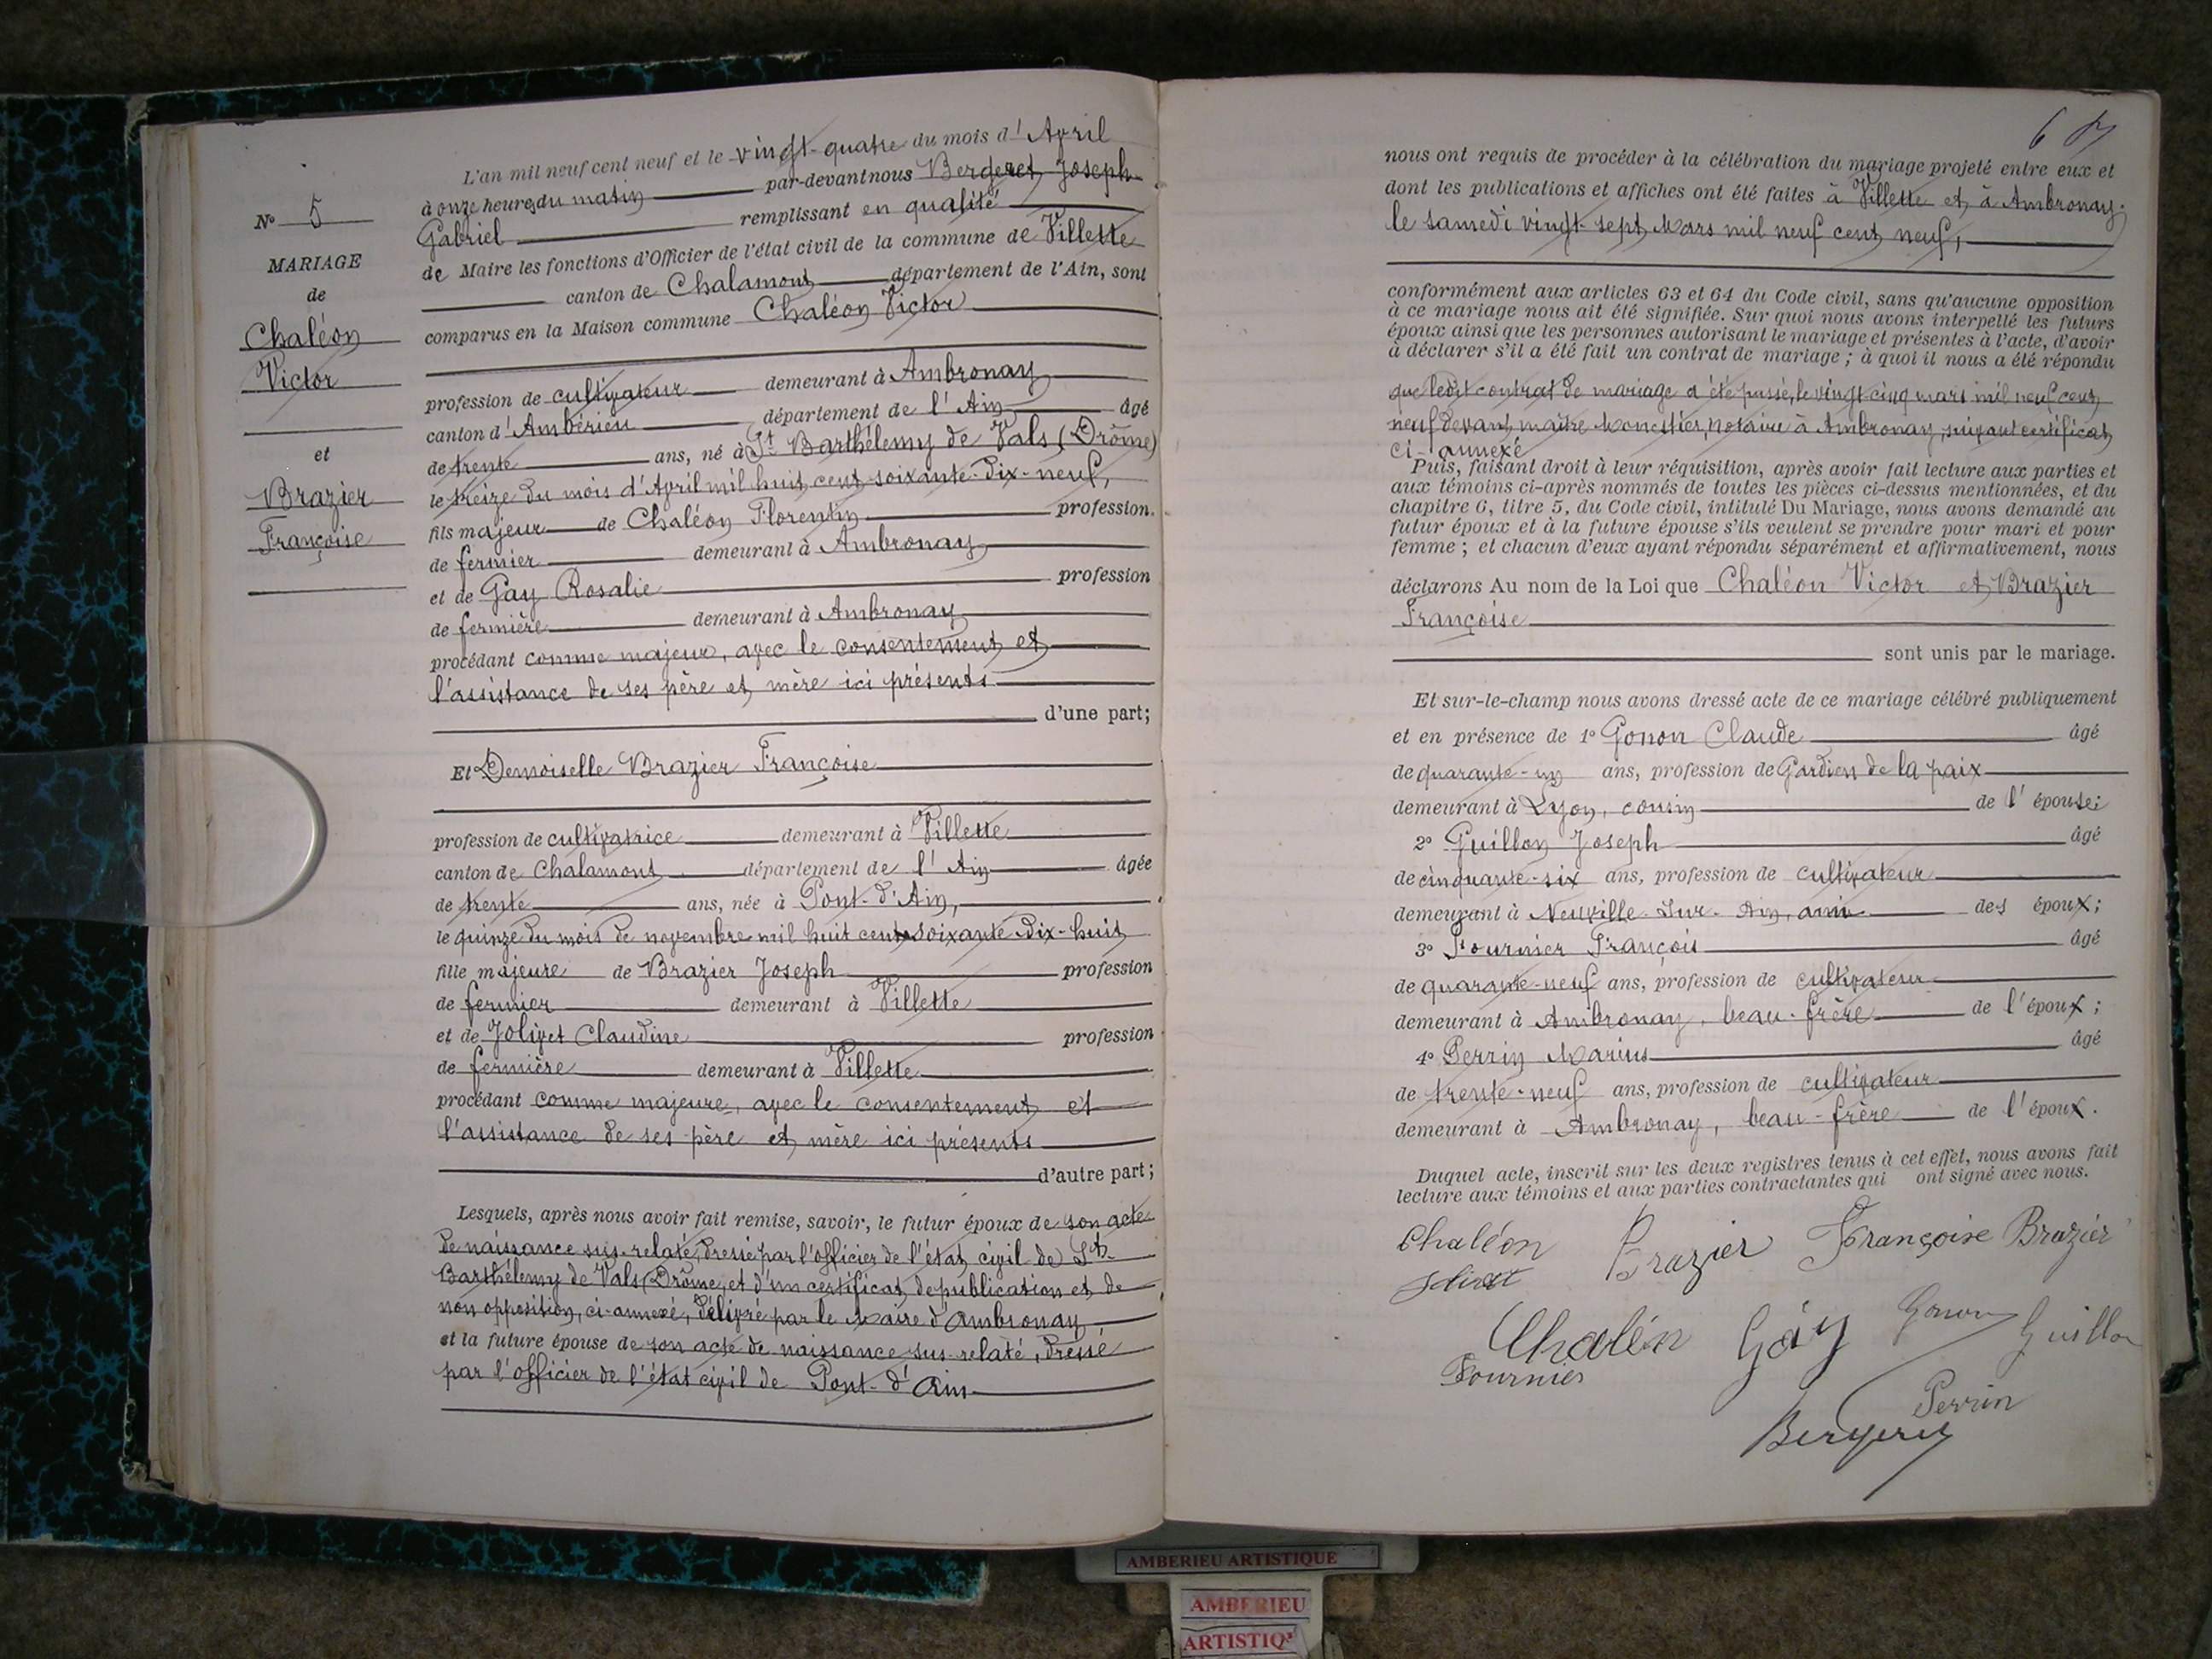 L'an mil neuf cent neuf et le vingt-quatre du mois d'Avril
à onze heures du matin par-devant nous Bergeret Joseph
Gabriel remplissant en qualité
de Maire les fonctions d'Officier de l'état civil de la commune de Villette
canton de Chalamont département de l'Ain, sont
comparus en la Maison commune Chaléon Victor
profession de cultivateur demeurant à Ambronay
canton d'Ambérieu département de l'Ain âgé
de trente ans, né à St Barthélemy de Vals (Drôme)
le treize du mois d'Avril mil huit cent soixante-dix-neuf,
fils majeur de Chaléon Florentin profession
de fermier demeurant à Ambronay
et de Gay Rosalie profession
de fermière demeurant à Ambronay
procédant comme majeur, avec le consentement et
l'assistance de ses père et mère ici présents
d'une part;
Et Demoiselle Brazier Françoise
profession de cultivatrice demeurant à Villette
canton de Chalamont département de l'Ain âgée
de trente ans, née à Pont-d'Ain,
le quinze du mois de novembre mil huit cent soixante dix-huit
fille majeure de Brazier Joseph profession
de fermier demeurant à Villette
et de Jolivet Claudine profession
de fermière demeurant à Villette
procédant comme majeure, avec le consentement et
l'assistance de ses père et mère ici présents
d'autre part;
Lesquels, après nous avoir fait remise, savoir, le futur époux de son acte
de naissance sus-relaté, dressé par l'officier de l'état civil de St-
Barthélemy de Vals (Drôme, et d'un certificat de publication et de
non opposition, ci-annexé, délivré par le Maire d'Ambronay
et la future épouse de son acte de naissance sus-relaté, dressé
par l'officier de l'état civil de Pont-d'Ain
No 5
MARIAGE
de
Chaléon
Victor
et
Brazier
Françoise
67
nous ont requis de procéder à la célébration du mariage projeté entre eux et
dont les publications et affiches ont été faites à Villette et à Ambronay
le samedi vingt-sept Mars mil neuf cent neuf,
conformément aux articles 63 et 64 du Code civil, sans qu'aucune opposition
à ce mariage nous ait été signifiée. Sur quoi nous avons interpellé les futurs
époux ainsi que les personnes autorisant le mariage et présentes à l'acte, d'avoir
à déclarer s'il a été fait un contrat de mariage ; à quoi il nous a été répondu
que ledit contrat de mariage a été passé, le vingt cinq mars mil neuf cent
neuf devant maître Monestier, notaire à Ambronay, suivant certificat
ci-annexé
Puis, faisant droit à leur réquisition, après avoir fait lecture aux parties et
aux témoins ci-après nommés de toutes les pièces ci-dessus mentionnées, et du
chapitre 6, titre 5, du Code civil, intitulé Du Mariage, nous avons demandé au
futur époux et à la future épouse s'ils veulent se prendre pour mari et pour
femme ; et chacun d'eux ayant répondu séparément et affirmativement, nous
déclarons Au nom de la Loi que Chaléon Victor et Brazier
Françoise
sont unis par le mariage.
Et sur-le-champ nous avons dressé acte de ce mariage célébré publiquement
et en présence de 1° Gonon Claude âgé
de quarante-un ans, profession de Gardien de la paix
demeurant à Lyon, cousin de l'épouse;
2° Guillon Joseph âgé
de cinquante-six ans, profession de cultivateur
demeurant à Neuville-sur-Ain, ami des époux;
3° Fournier François âgé
de quarante-neuf ans, profession de cultivateur
demeurant à Ambronay, beau-frère de l'époux ;
4° Perrin Marius âgé
de trente-neuf ans, profession de cultivateur
demeurant à Ambronay, beau-frère de l'époux.
Duquel acte, inscrit sur les deux registres tenus à cet effet, nous avons fait
lecture aux témoins et aux parties contractantes qui ont signé avec nous.
Chaléon Brazier Françoise Brazier
Chalén Gáy Gonon Guillon
Fournier
Perrin
Bergeret
AMBERIEU ARTISTIQUE
AMBERIEU
ARTISTIQ